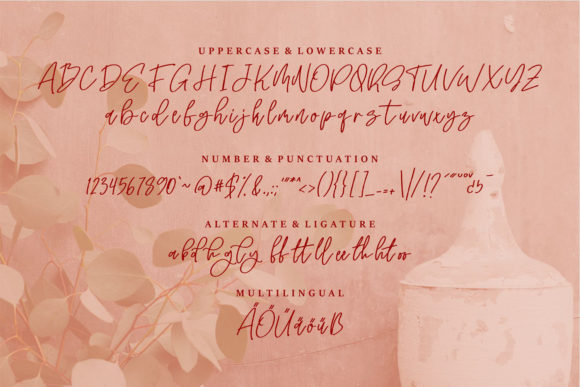 UPPERCASE & LOWERCASE
ABCDEFGHIJKMNOPQRSTUVWXYZ
abcdefghijklmnopqrstuvwxyz
NUMBER & PUNCTUATION
1234567890`~@#$%&.,:;'"*^<>(){}[]_-=+\|/!?
ALTERNATE & LIGATURE
abdhgly ff tt ll ee th ht oo
MULTILINGUAL
ÄÖÜäöüß